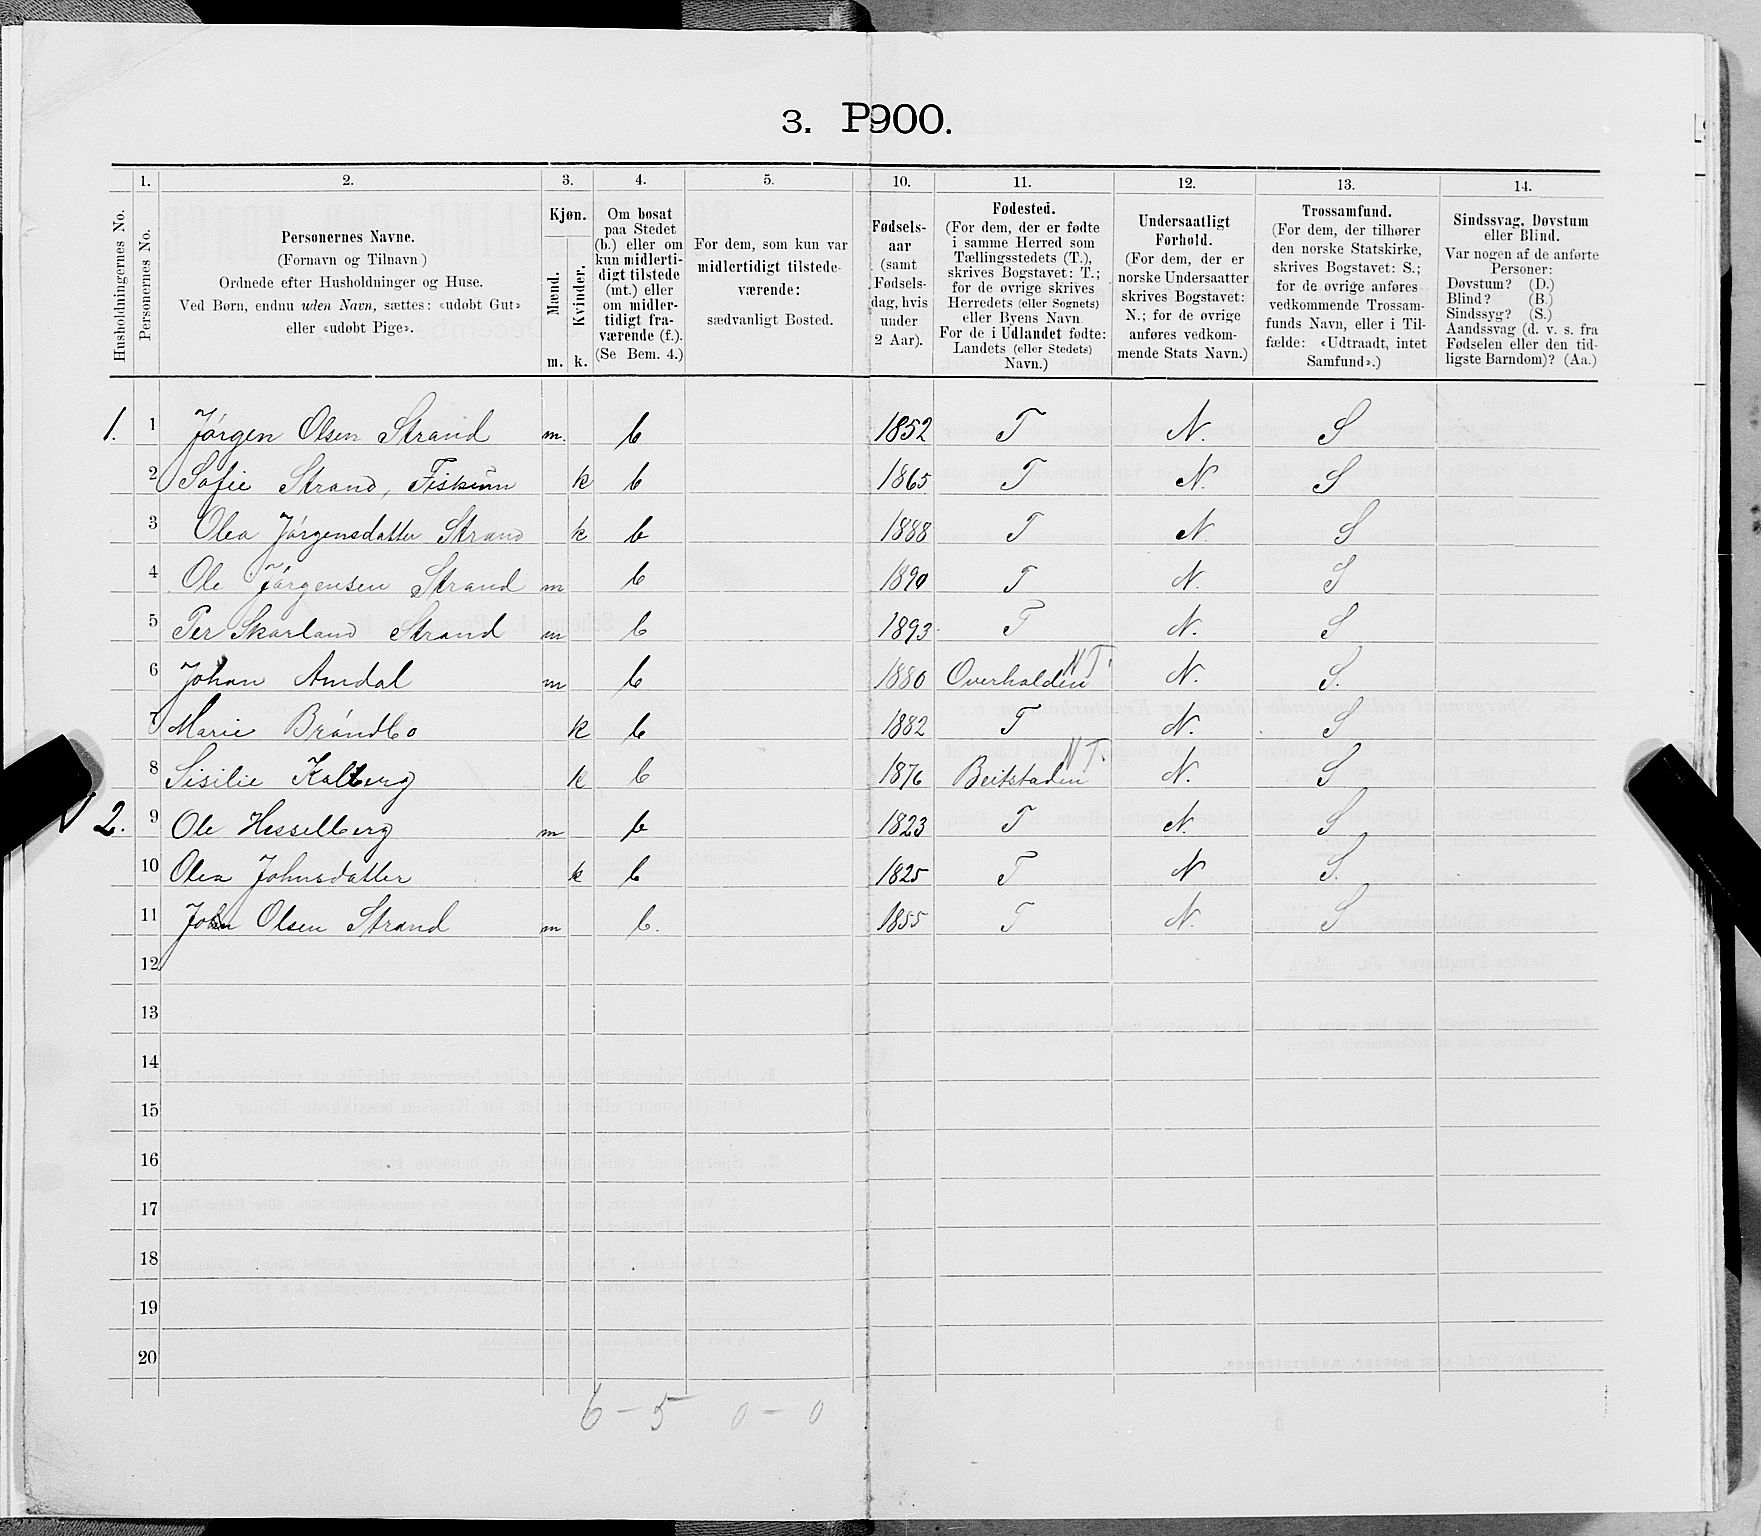 3. P900.
1.
2.
3.
4.
5.
10.
11.
12.
13.
14.
Husholdningernes No.
Personernes No.
Personernes Navne.
(Fornavn og Tilnavn)
Ordnede efter Husholdninger og Huse.
Ved Børn, endnu uden Navn, sættes: «udøbt Gut»
eller «udøbt Pige».
Kjøn.
Mænd.
Kvinder.
m. k.
Om bosat
paa Stedet
(b.) eller om
kun midlerti-
digt tilstede
(mt.) eller
om midler-
tidigt fra-
værende (f.).
(Se Bem. 4.)
For dem, som kun var
midlertidigt tilstede-
værende:
sædvanligt Bosted.
Fødsels-
aar
(samt
Fødsels-
dag, hvis
under
2 Aar).
Fødested.
(For dem, der er fødte
i samme Herred som
Tællingsstedets (T.),
skrives Bogstavet: T.;
for de øvrige skrives
Herredets (eller Sognets)
eller Byens Navn
For de i Udlandet fødte:
Landets (eller Stedets)
Navn.)
Undersaatligt
Forhold.
(For dem, der er
norske Undersaatter
skrives Bogstavet:
N.; for de øvrige
anføres vedkom-
mende Stats Navn.)
Trossamfund.
(For dem, der tilhører
den norske Statskirke,
skrives Bogstavet: S.;
for de øvrige anføres
vedkommende Trossam-
funds Navn, eller i Til-
fælde: «Udtraadt, intet
Samfund».)
Sindssvag, Døvstum
eller Blind.
Var nogen af de anførte
Personer:
Døvstum? (D.)
Blind? (B.)
Sindssyg? (S.)
Aandssvag (d. v. s. fra
Fødselen eller den tid-
ligste Barndom)? (Aa.)
1. 1 Jørgen Olsen Strand m. b 1852 T N. S
2 Sofie Strand, Fiskum k b 1865 T N. S
3 Olea Jørgensdatter Strand k b 1888 T N. S
4 Ole Jørgensen Strand m b 1890 T N. S
5 Per Skarland Strand m b 1893 T N. S
6 Johan Amdal m b 1880 Overhalden N T. N. S.
7 Marie Brøndbo k b 1882 T N. S
8 Sisilie Kalberg k b 1876 Beitstaden N T. N. S
2. 9 Ole Hesselberg m b 1823 T N. S
10 Olea Johnsdatter k b 1825 T N S.
11 John Olsen Strand m b. 1855 T N. S
12
13
14
15
16
17
18
19
20
6 - 5 0 - 0